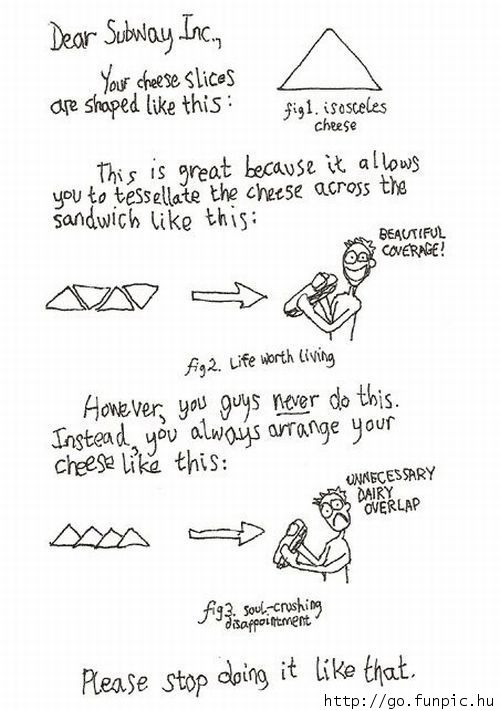 Dear Subway Inc.,
Your cheese slices
are shaped like this:
fig1. isosceles
cheese
This is great because it allows
you to tessellate the cheese across the
sandwich like this:
BEAUTIFUL
COVERAGE!
fig2. Life worth living
However, you guys never do this.
Instead, you always arrange your
cheese like this:
UNNECESSARY
DAIRY
OVERLAP
fig3. soul-crushing
disappointment
Please stop doing it like that.
http://go.funpic.hu